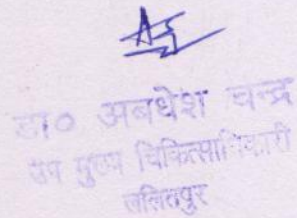 डा० अबधेश चन्द्र
उप मुख्य चिकित्साधिकारी
ललितपुर